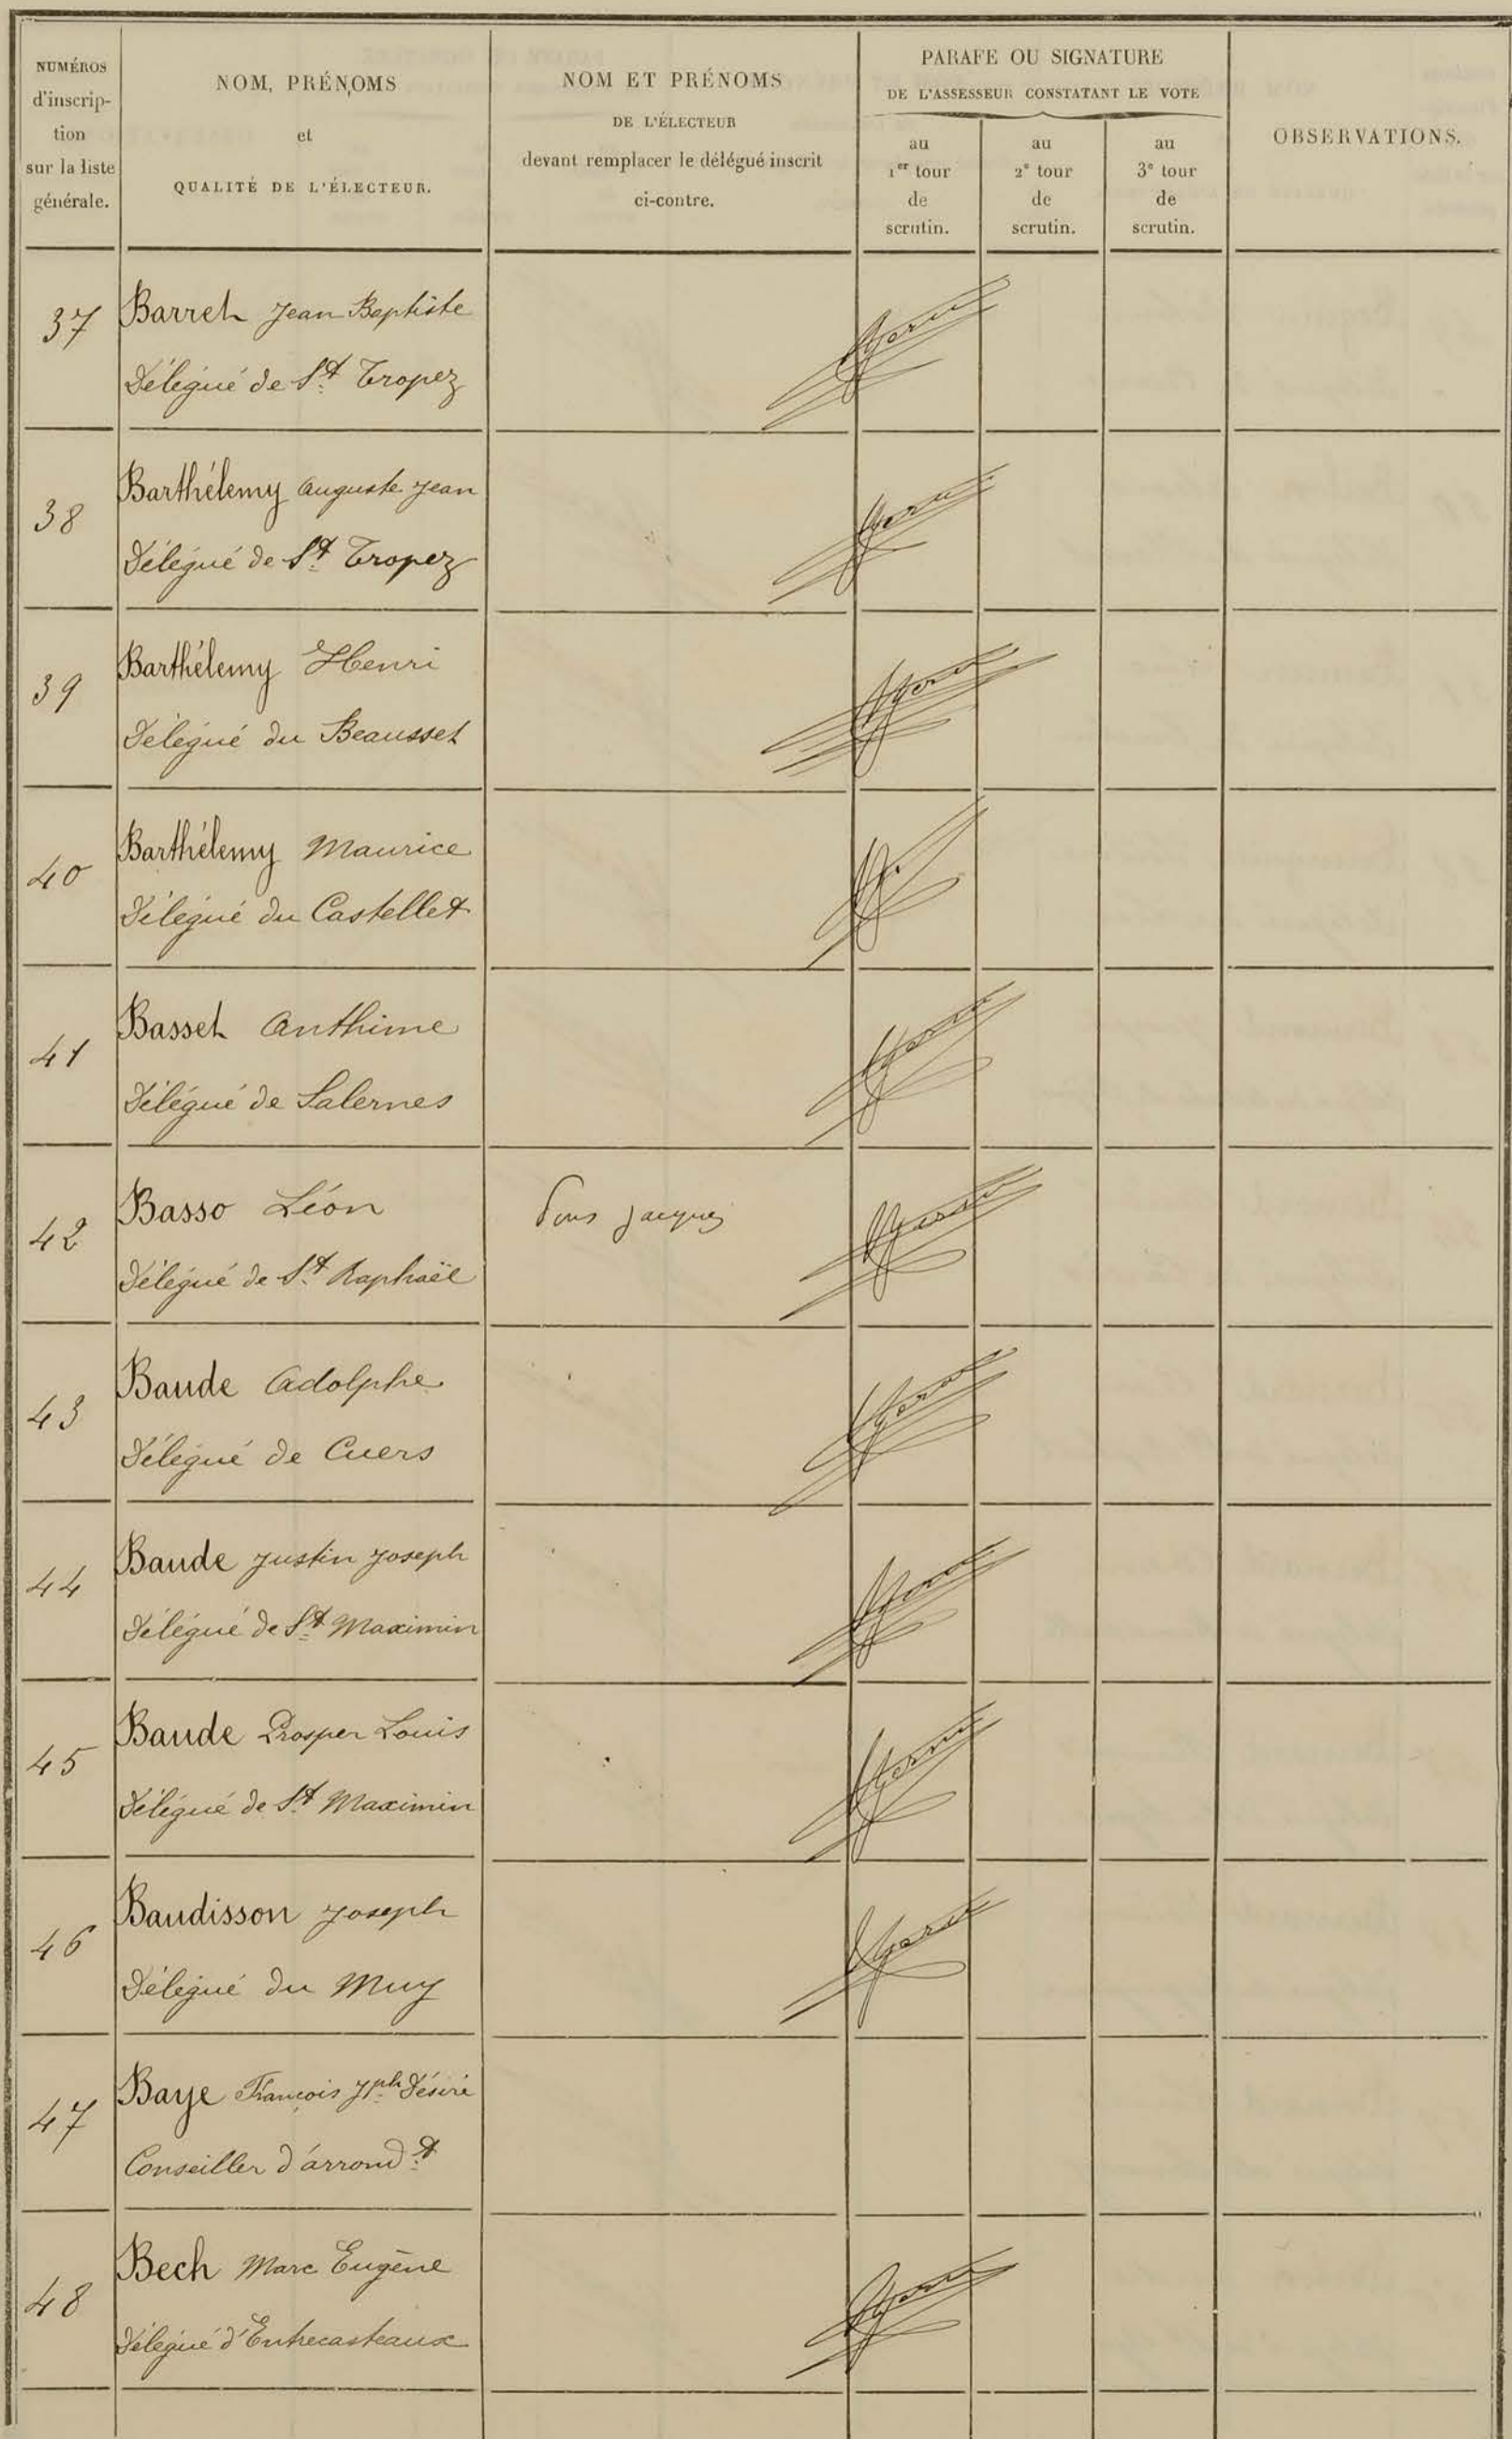 NUMÉROS
d'inscrip-
tion
sur la liste
générale.
NOM, PRÉNOMS
et
QUALITÉ DE L'ÉLECTEUR.
NOM ET PRÉNOMS
DE L'ÉLECTEUR
devant remplacer le délégué inscrit
ci-contre.
PARAFE OU SIGNATURE
DE L'ASSESSEUR CONSTATANT LE VOTE
au
1er tour
de
scrutin.
au
2e tour
de
scrutin.
au
3e tour
de
scrutin.
OBSERVATIONS.
37
Barret Jean Baptiste
Délégué de St Tropez
38
Barthélemy Auguste Jean
Délégué de St Tropez
39
Barthélemy Henri
Délégué du Beausset
40
Barthélemy Maurice
Délégué du Castellet
41
Basset Anthime
Délégué de Salernes
42
Basso Léon
Délégué de St Raphaël
Pons Jacques
43
Baude Adolphe
Délégué de Cuers
44
Baude Justin Joseph
Délégué de St Maximin
45
Baude Prosper Louis
Délégué de St Maximin
46
Baudisson Joseph
Délégué du Muy
47
Baye François Jph Désiré
Conseiller d'arrondt
48
Bech Marc Eugène
Délégué d'Entrecasteaux